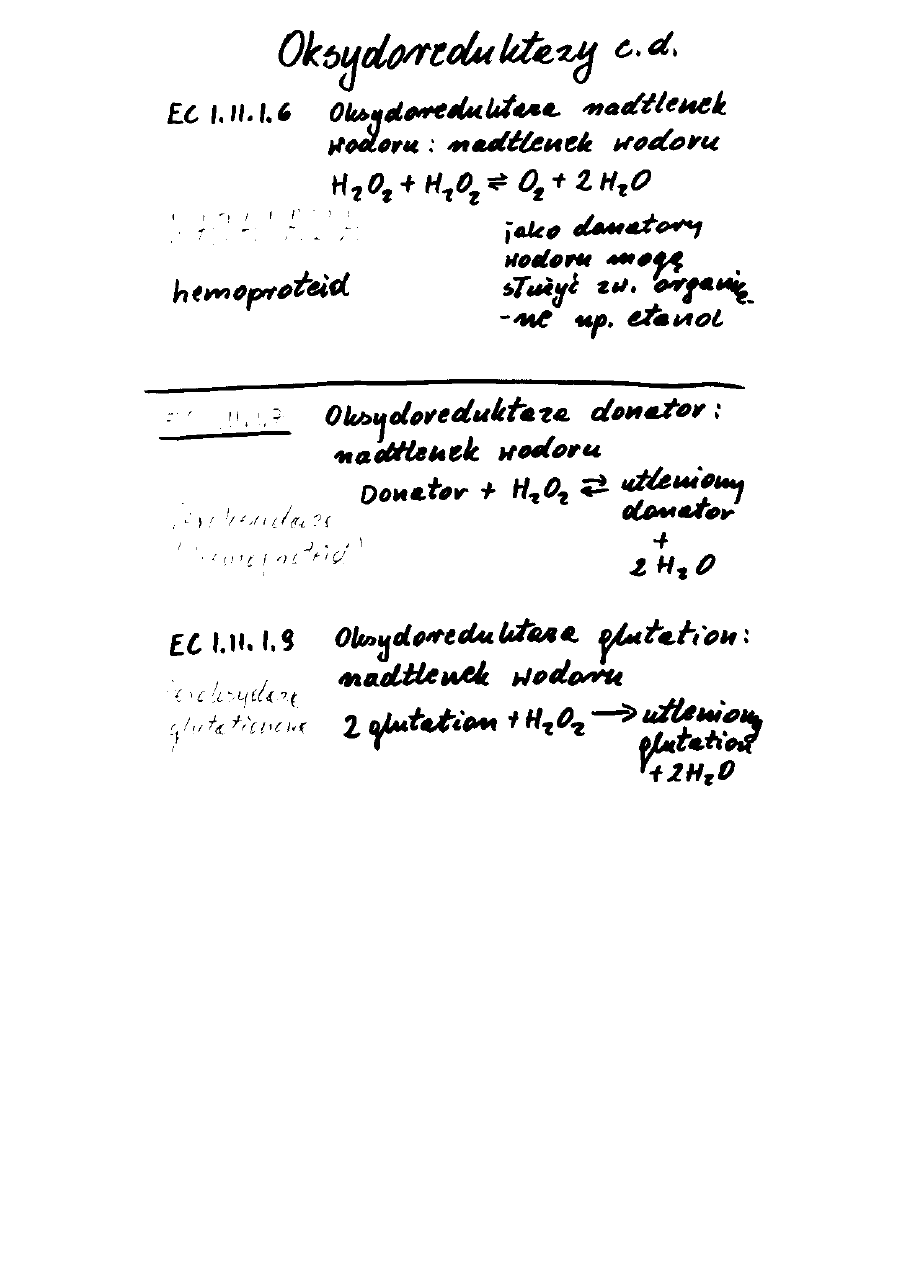 Oksydoreduktazy c.d.
EC 1.11.1.6 Oksydoreduktaza nadtlenek
wodoru : nadtlenek wodoru
H₂O₂ + H₂O₂ ⇌ O₂ + 2 H₂O
jako donatory
wodoru mogą
hemoproteid służyć zw. organic
-ne np. etanol
Oksydoreduktaza donator :
nadtlenek wodoru
Donator + H₂O₂ ⇄ utleniony
donator
+
2 H₂O
EC 1.11.1.9 Oksydoreduktaza glutation :
nadtlenek wodoru
glutationowa 2 glutation + H₂O₂ → utleniony
glutation
+ 2H₂O